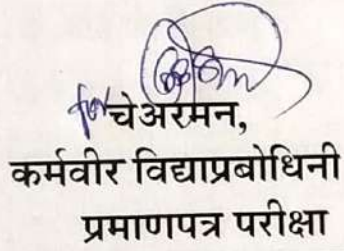 for चेअरमन,
कर्मवीर विद्याप्रबोधिनी
प्रमाणपत्र परीक्षा